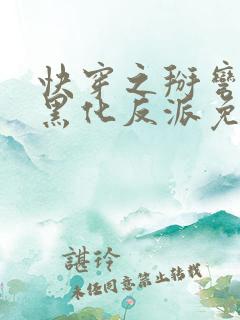 快穿之掰弯
黑化反派免
諶玲
未任同意禁止转载